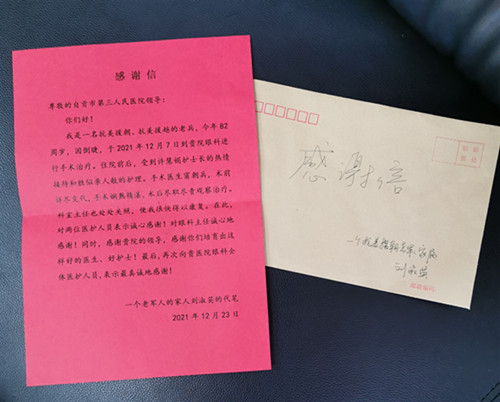 感谢信
尊敬的自贡市第三人民医院领导：
你们好！
我是一名抗美援朝、抗美援越的老兵，今年82
周岁，因倒睫，于2021年12月7日到贵院眼科进
行手术治疗。住院前后，受到许慧娟护士长的热情
接待和胜似亲人般的护理。手术医生
术后尽职尽责观察治疗，
科室主任也处处关照，使我很快得以康复。在此，
对两位医护人员表示诚心感谢！对眼科主任诚心地
感谢！同时，感谢贵院的领导，感谢你们培育出这
样好的医生、好护士！最后，再次向贵医院眼科全
体医护人员，表示最真诚地感谢！
一个老军人的家人刘淑英的代笔
2021年12月23日
感谢信
刘淑英
邮政编码